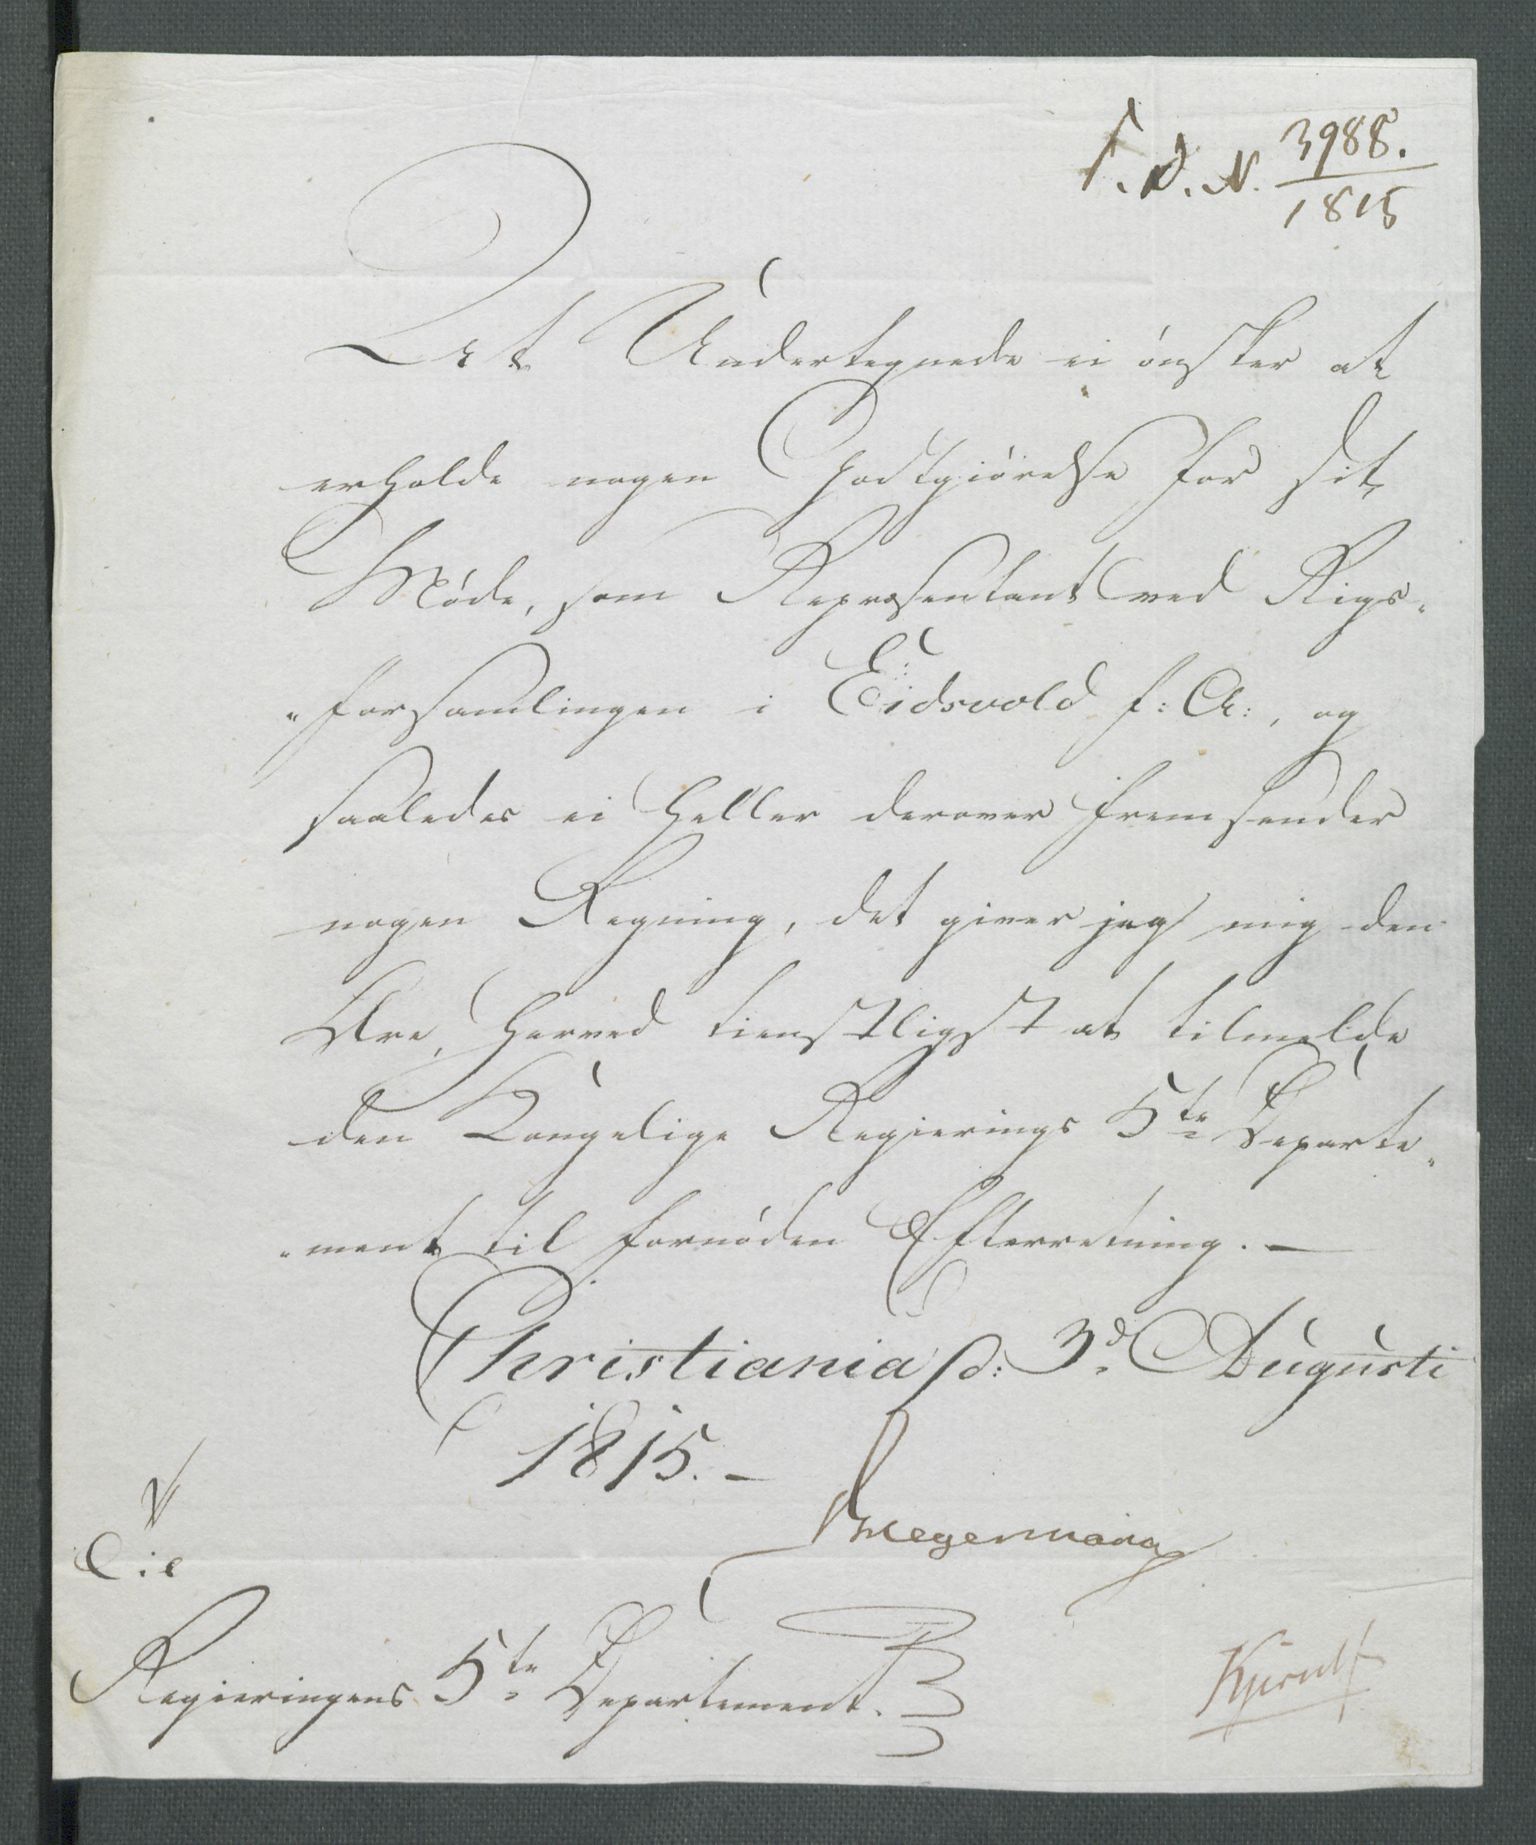 F. D. N. 3988.
1815
At Undertegnede ei ønsker at
erholde nogen Godtgiørelse for sit
Møde, som Repræsentant ved Rigs-
forsamlingen i Eidsvold f: A:, og
saaledes ei heller derover fremsender
nogen Regning, det giver jeg mig den
Ære, herved tienstligst at tilmelde
den Kongelige Regierings 5te Departe-
ment til fornøden Efterretning. —
Christiania d: 3d Augusti
1815. —
Til
Regieringens 5te Departement.
Kjerulf